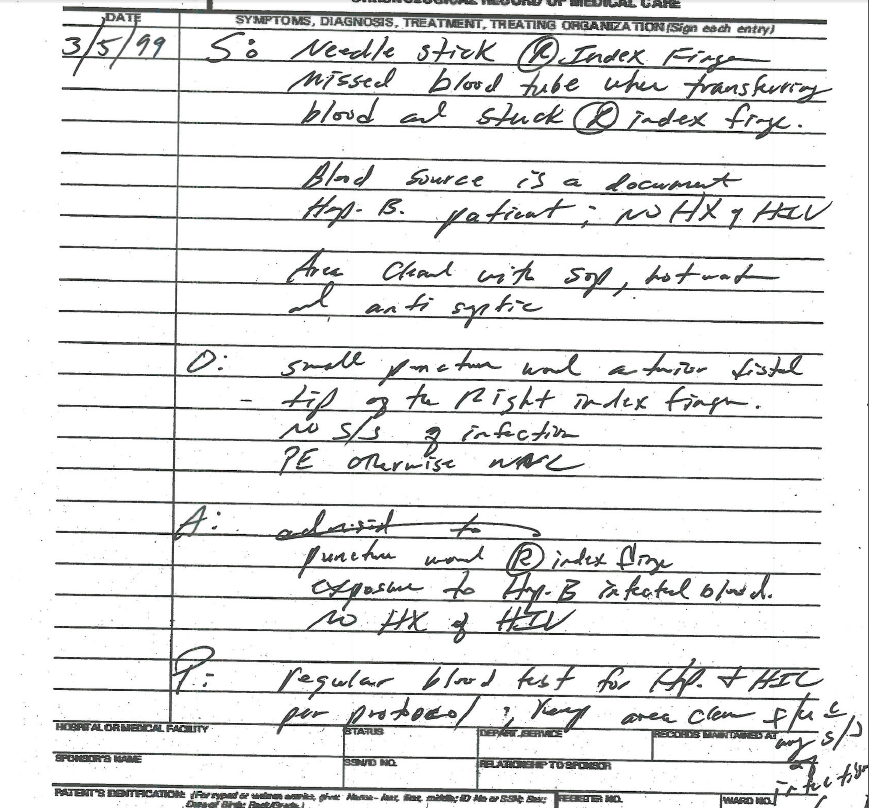 CHRONOLOGICAL RECORD OF MEDICAL CARE
DATE SYMPTOMS, DIAGNOSIS, TREATMENT, TREATING ORGANIZATION (Sign each entry)
3/5/99 S: Needle stick Ⓡ Index Finger
Missed blood tube when transferring
blood and stuck Ⓡ index finger.
Blood source is a document
Hep. B. patient; NO HX of HIV
Area cleaned with soap, hot water
and anti septic
O: small puncture wound anterior distal
- tip of the Right index finger.
NO S/S of infection
PE otherwise WNL
A: advised to
puncture wound Ⓡ index finger
exposure to Hep. B infected blood.
NO HX of HIV
P: regular blood test for Hep. + HIV
per protocol; Keep area clean f/u c̄
any s/s
of
infection
HOSPITAL OR MEDICAL FACILITY STATUS DEPART./SERVICE RECORDS MAINTAINED AT
SPONSOR'S NAME SSN/ID NO. RELATIONSHIP TO SPONSOR
PATIENT'S IDENTIFICATION: (For typed or written entries, give: Name - last, first, middle; ID No or SSN; Sex; REGISTER NO. WARD NO.
Date of Birth; Rank/Grade.)